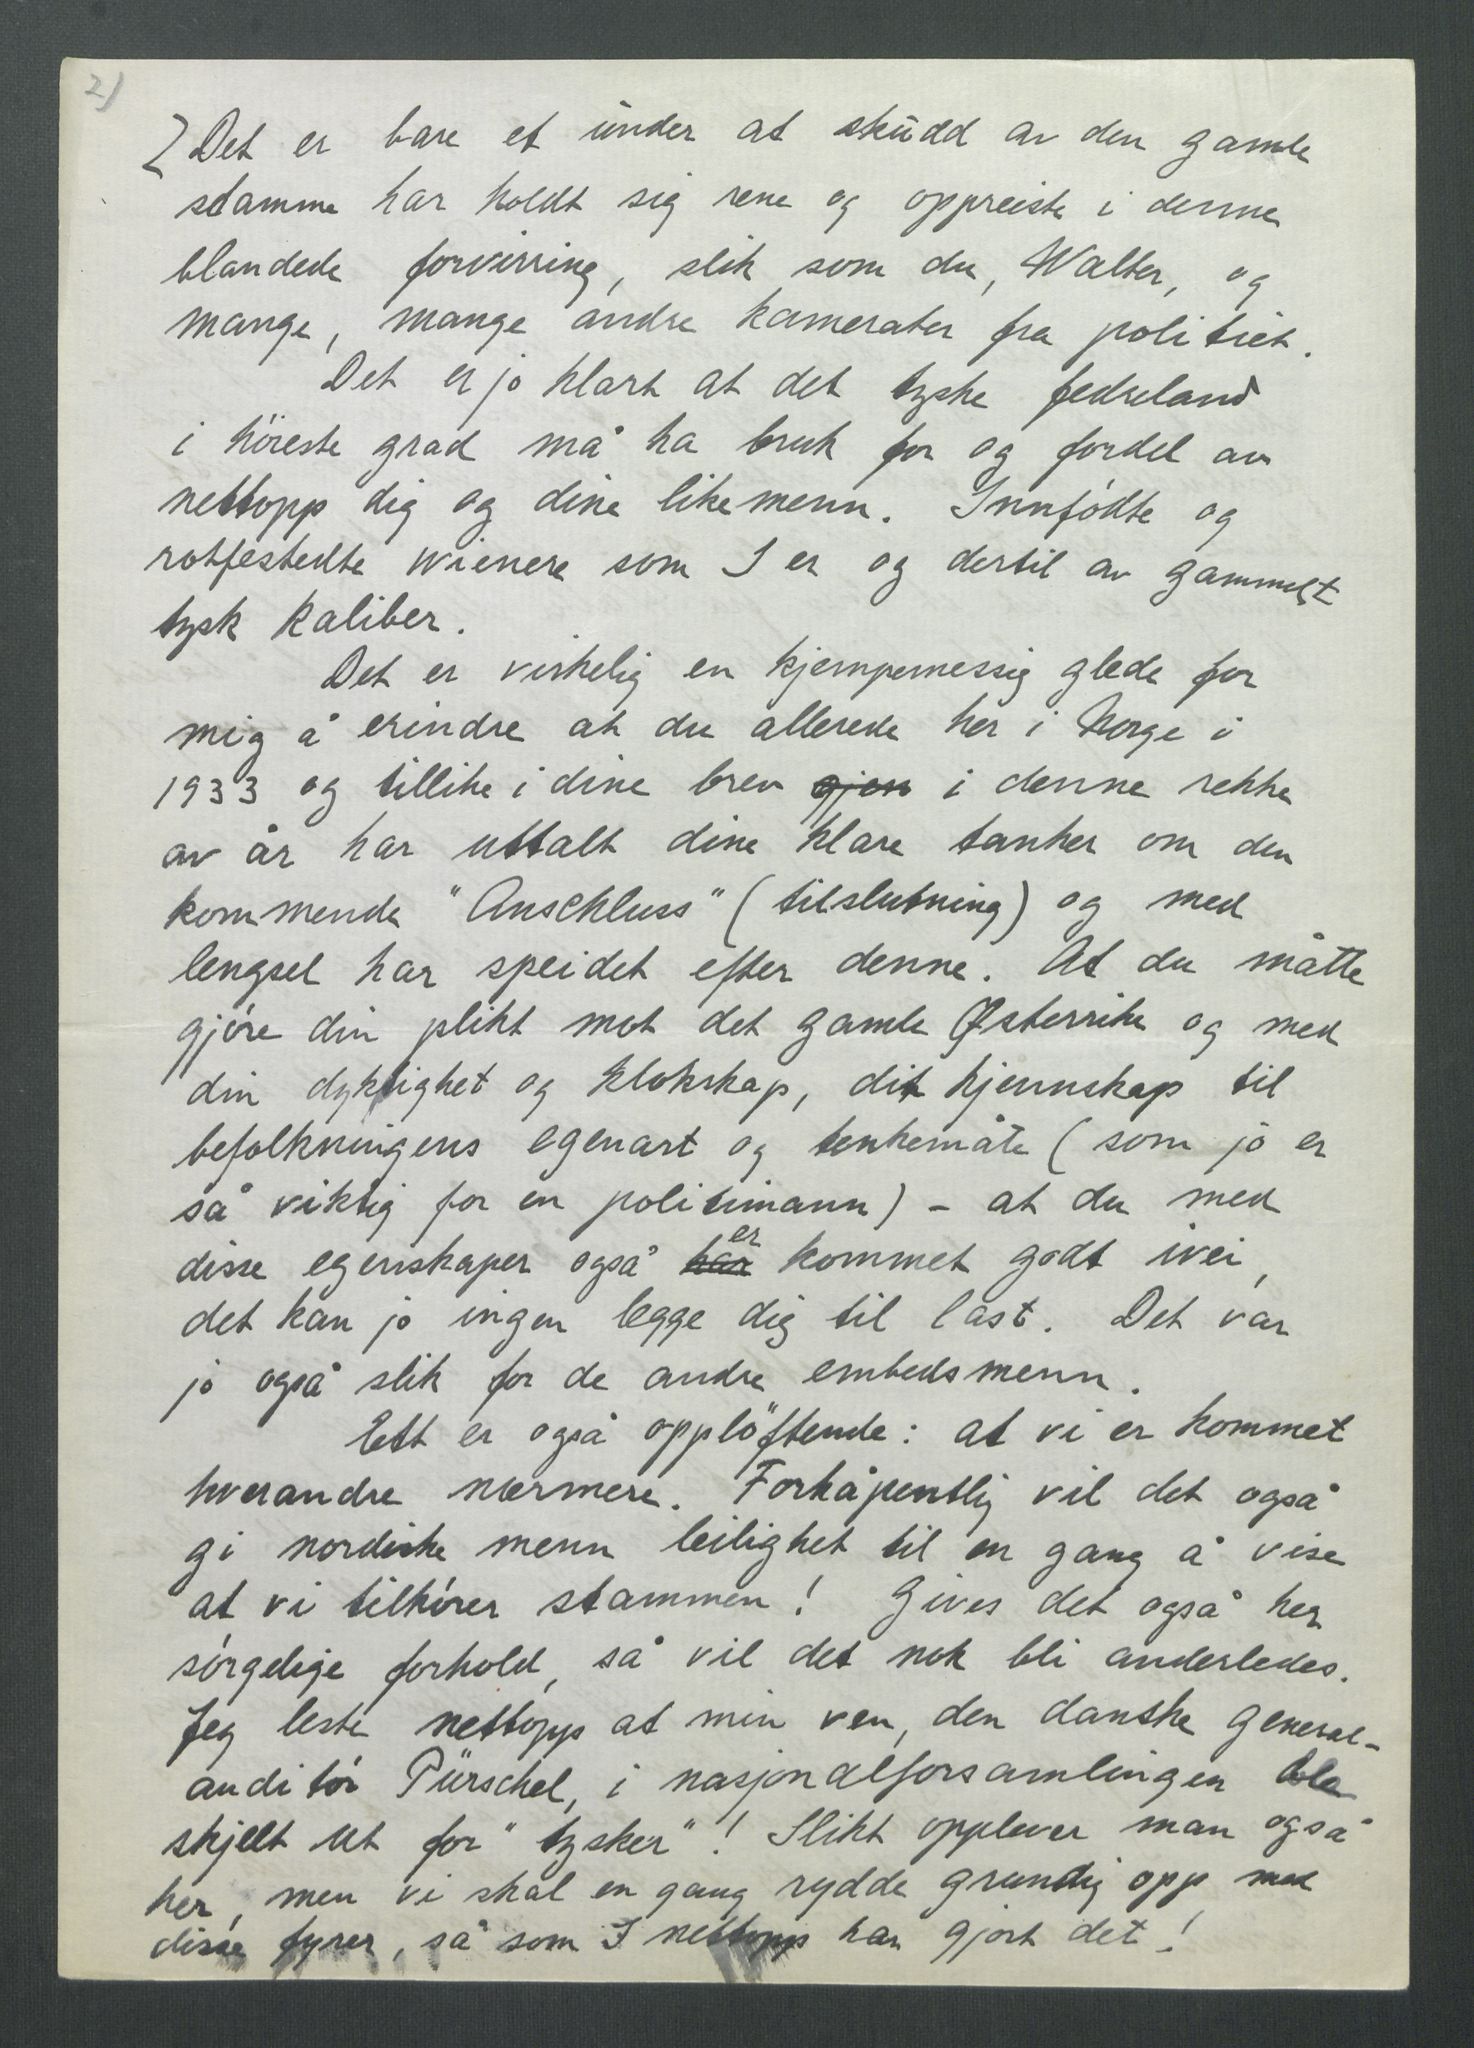 2)
Det er bare et ūnder at skūdd av den gamle
stamme har holdt sig rene og oppreiste i denne
blandede forvirring, slik som du, Walter, og
mange, mange andre kamerater fra politiet.
Det er jo klart at det tyske fedreland
i höieste grad må ha bruk for og fordel av
nettopp dig og dine likemenn. Innfödte og
rotfestedte wienere som I er og dertil av gammelt
tysk kaliber.
Det er virkelig en kjempemessig glede for
mig å erindre at du allerede her i Norge i
1933 og tillike i dine brev gjen i denne rekke
av år har uttalt dine klare tanker om den
kommende "Anschluss" (tilslutning) og med
lengsel har speidet efter denne. At du måtte
gjöre din plikt mot det gamle Østerrike og med
din dyktighet og klokskap, dit kjennskap til
befolkningens egenart og tenkemåte (som jo er
så viktig for en politimann) - at du med
disse egenskaper også har er kommet godt ivei,
det kan jo ingen legge dig til last. Det var
jo også slik for de andre embedsmenn.
Ett er også opplöftende: at vi er kommet
hverandre nærmere. Forhåpentlig vil det også
gi nordiske menn leilighet til en gang å vise
at vi tilhörer stammen! Gives det også her
sörgelige forhold, så vil det nok bli anderledes.
Jeg leste nettopp at min ven, den danske general-
auditör Pürschel, i nasjonalforsamlingen ble
skjelt ut for "tysker"! Slikt opplever man også
her, men vi skal en gang rydde grundig opp med
disse fyrer, så som I nettopp har gjort det!